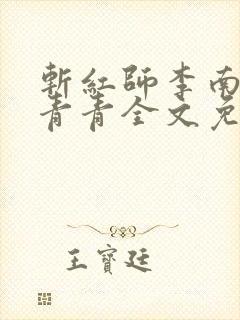 斬紅師李南
青青全文免
王寶廷